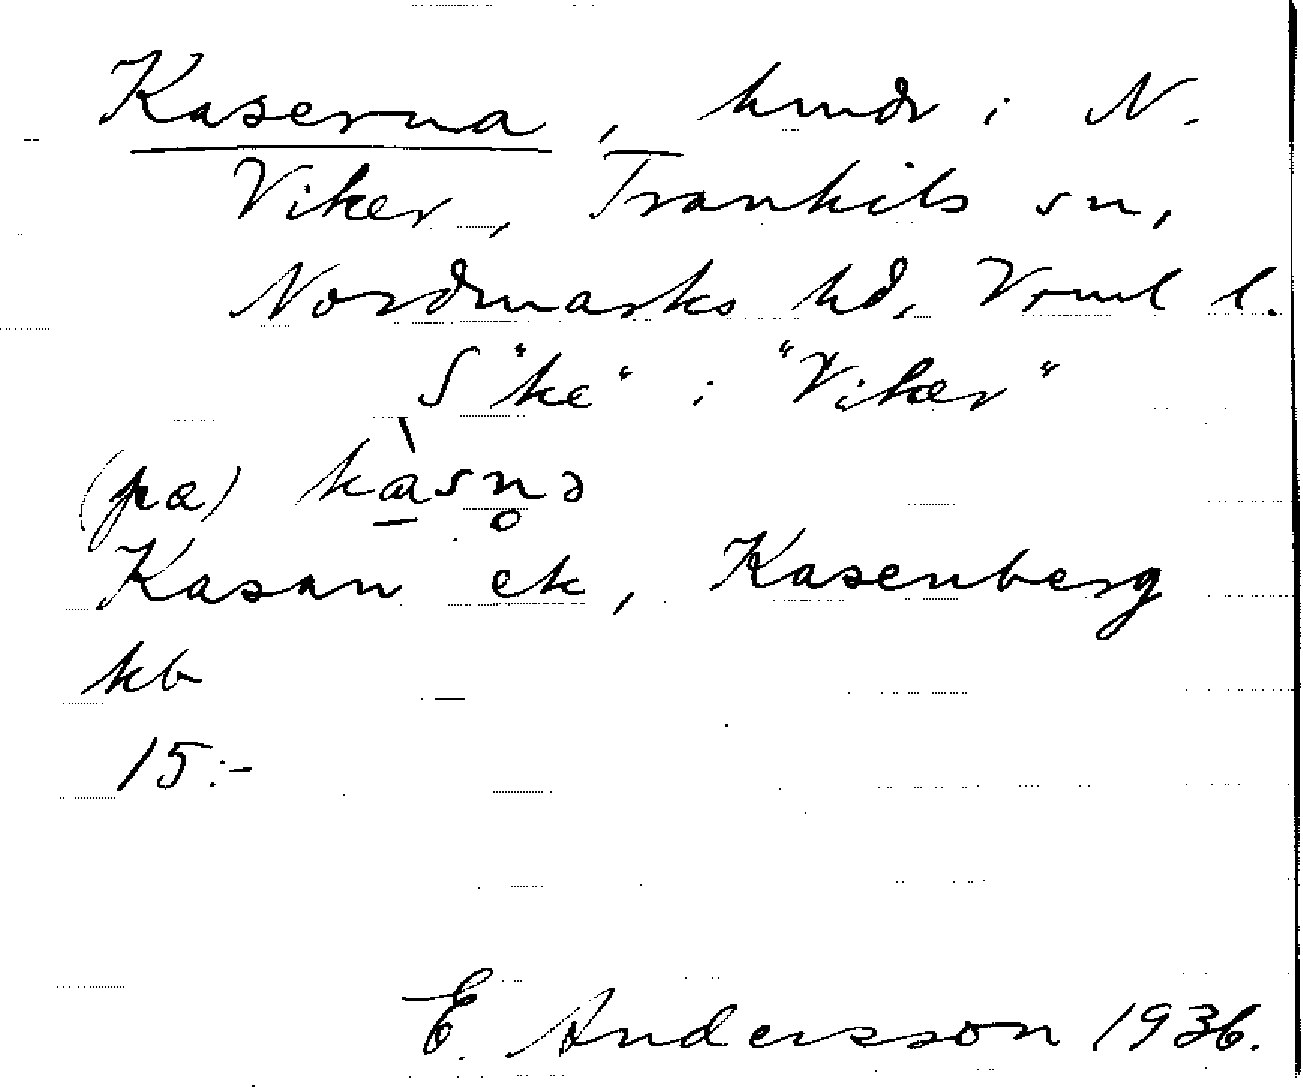 Kaserna, hmdr i N.
Viker, Trankils sn,
Nordmarks hd, Vrml l.
S "ke" i "Viker"
(pa) kàsn̥ə
Kasan ek, Kasenberg
kb
15:-
E. Andersson 1936.